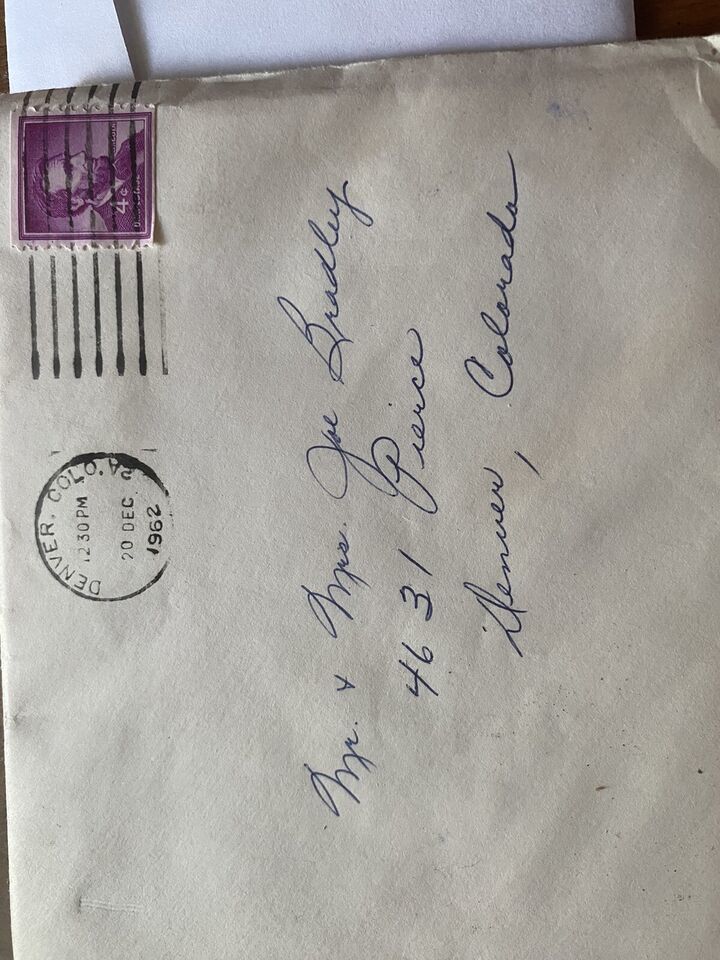 DENVER, COLO.
12 30 PM
20 DEC
1962
4¢
Mr. & Mrs. Joe Bradley
4631 Pierce
Denver, Colorado